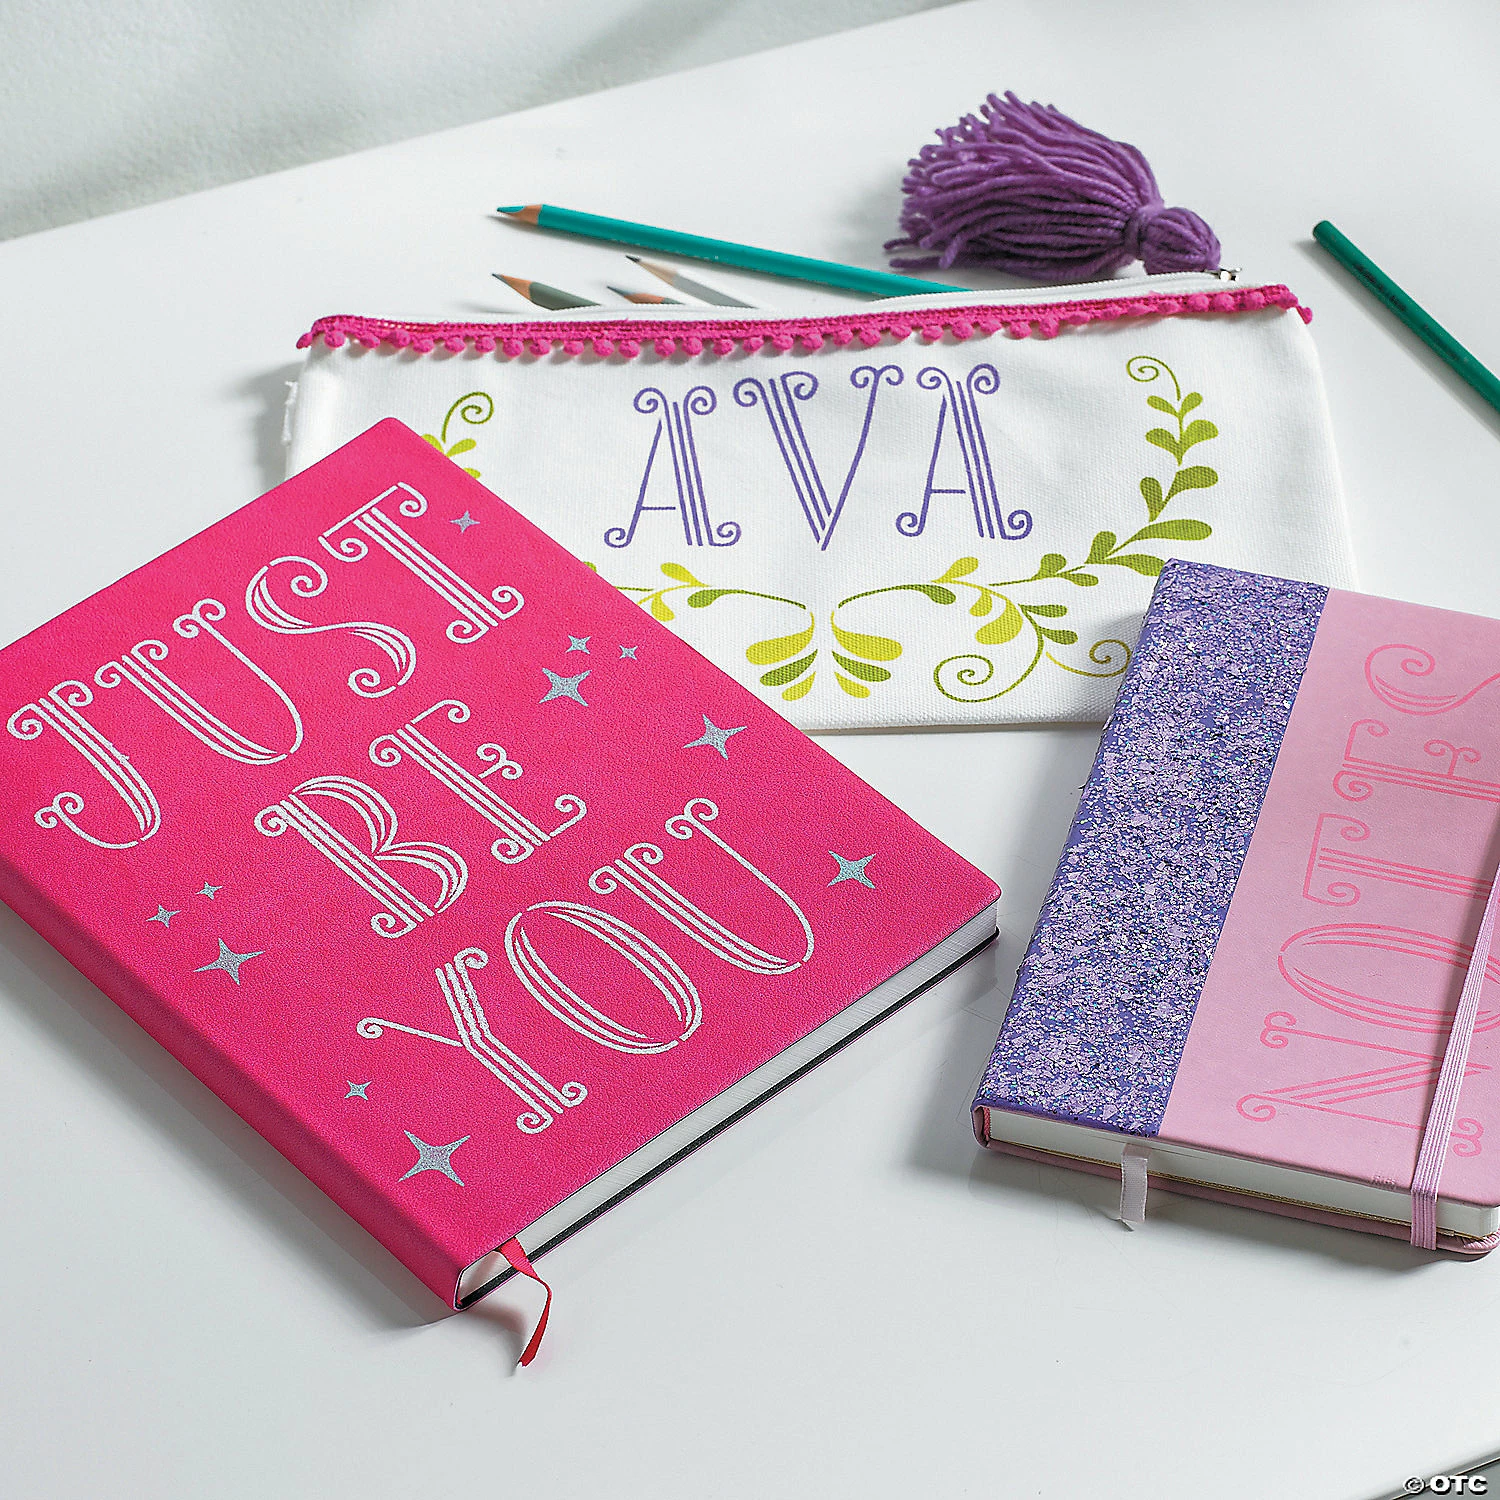 AVA
JUST
BE
YOU
NOTES
© OTC